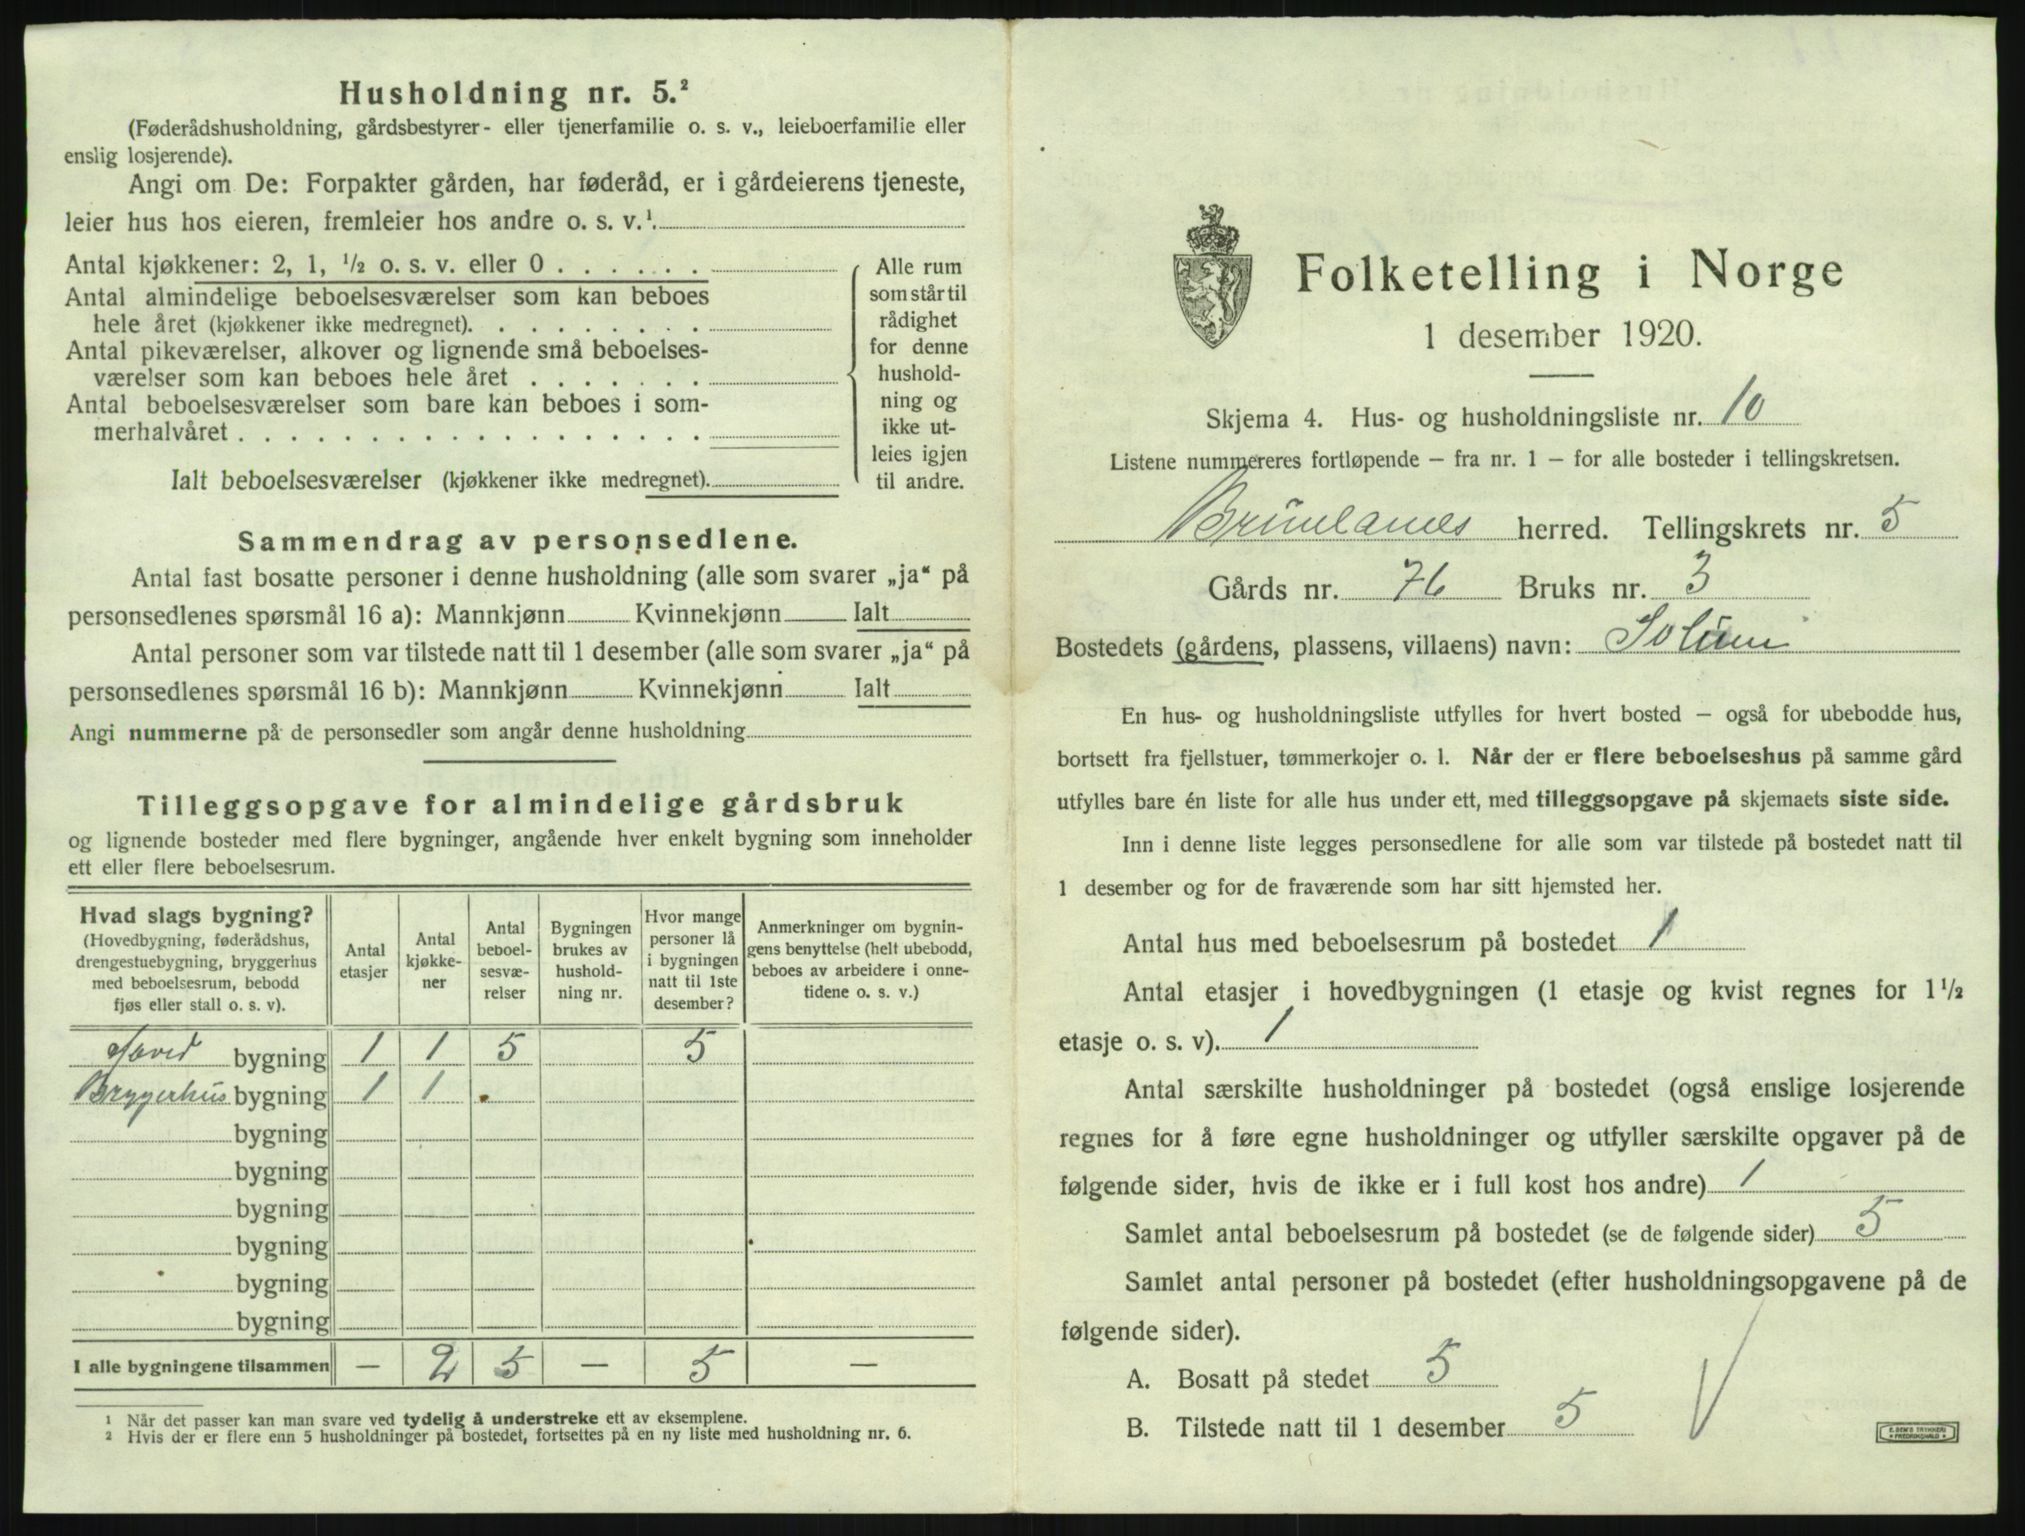 Husholdning nr. 5.²
(Føderådshusholdning, gårdsbestyrer- eller tjenerfamilie o. s. v., leieboerfamilie eller
enslig losjerende).
Angi om De: Forpakter gården, har føderåd, er i gårdeierens tjeneste,
leier hus hos eieren, fremleier hos andre o. s. v.¹
Antal kjøkkener: 2, 1, ½ o. s. v. eller 0 . . . . . .
Antal almindelige beboelsesværelser som kan beboes
hele året (kjøkkener ikke medregnet). . . . . . . . .
Antal pikeværelser, alkover og lignende små beboelses-
værelser som kan beboes hele året . . . . . . .
Antal beboelsesværelser som bare kan beboes i som-
merhalvåret . . . . . . . . . . . . . . . . . .
Ialt beboelsesværelser (kjøkkener ikke medregnet).
Alle rum
som står til
rådighet
for denne
hushold-
ning og
ikke ut-
leies igjen
til andre.
Sammendrag av personsedlene.
Antal fast bosatte personer i denne husholdning (alle som svarer „ja“ på
personsedlenes spørsmål 16 a): Mannkjønn Kvinnekjønn Ialt
Antal personer som var tilstede natt til 1 desember (alle som svarer „ja“ på
personsedlenes spørsmål 16 b): Mannkjønn Kvinnekjønn Ialt
Angi nummerne på de personsedler som angår denne husholdning
Tilleggsopgave for almindelige gårdsbruk
og lignende bosteder med flere bygninger, angående hver enkelt bygning som inneholder
ett eller flere beboelsesrum.
Hvad slags bygning?
(Hovedbygning, føderådshus,
drengestuebygning, bryggerhus
med beboelsesrum, bebodd
fjøs eller stall o. s. v).
Antal
etasjer
Antal
kjøkke-
ner
Antal
beboel-
sesvæ-
relser
Bygningen
brukes av
hushold-
ning nr.
Hvor mange
personer lå
i bygningen
natt til 1ste
desember?
Anmerkninger om bygnin-
gens benyttelse (helt ubebodd,
beboes av arbeidere i onne-
tidene o. s. v.)
Hoved bygning 1 1 5 5
Bryggerhus bygning 1 1
bygning
bygning
bygning
bygning
bygning
bygning
I alle bygningene tilsammen — 2 5 — 5 —
¹ Når det passer kan man svare ved tydelig å understreke ett av eksemplene.
² Hvis der er flere enn 5 husholdninger på bostedet, fortsettes på en ny liste med husholdning nr. 6.
Folketelling i Norge
1 desember 1920.
Skjema 4. Hus- og husholdningsliste nr. 10
Listene nummereres fortløpende — fra nr. 1 — for alle bosteder i tellingskretsen.
Brunlanes herred. Tellingskrets nr. 5
Gårds nr. 76 Bruks nr. 3
Bostedets (gårdens, plassens, villaens) navn: Solum
En hus- og husholdningsliste utfylles for hvert bosted — også for ubebodde hus,
bortsett fra fjellstuer, tømmerkojer o. l. Når der er flere beboelseshus på samme gård
utfylles bare én liste for alle hus under ett, med tilleggsopgave på skjemaets siste side.
Inn i denne liste legges personsedlene for alle som var tilstede på bostedet natt til
1 desember og for de fraværende som har sitt hjemsted her.
Antal hus med beboelsesrum på bostedet 1
Antal etasjer i hovedbygningen (1 etasje og kvist regnes for 1½
etasje o. s. v). 1
Antal særskilte husholdninger på bostedet (også enslige losjerende
regnes for å føre egne husholdninger og utfyller særskilte opgaver på de
følgende sider, hvis de ikke er i full kost hos andre) 1
Samlet antal beboelsesrum på bostedet (se de følgende sider) 5
Samlet antal personer på bostedet (efter husholdningsopgavene på de
følgende sider).
A. Bosatt på stedet 5
B. Tilstede natt til 1 desember 5